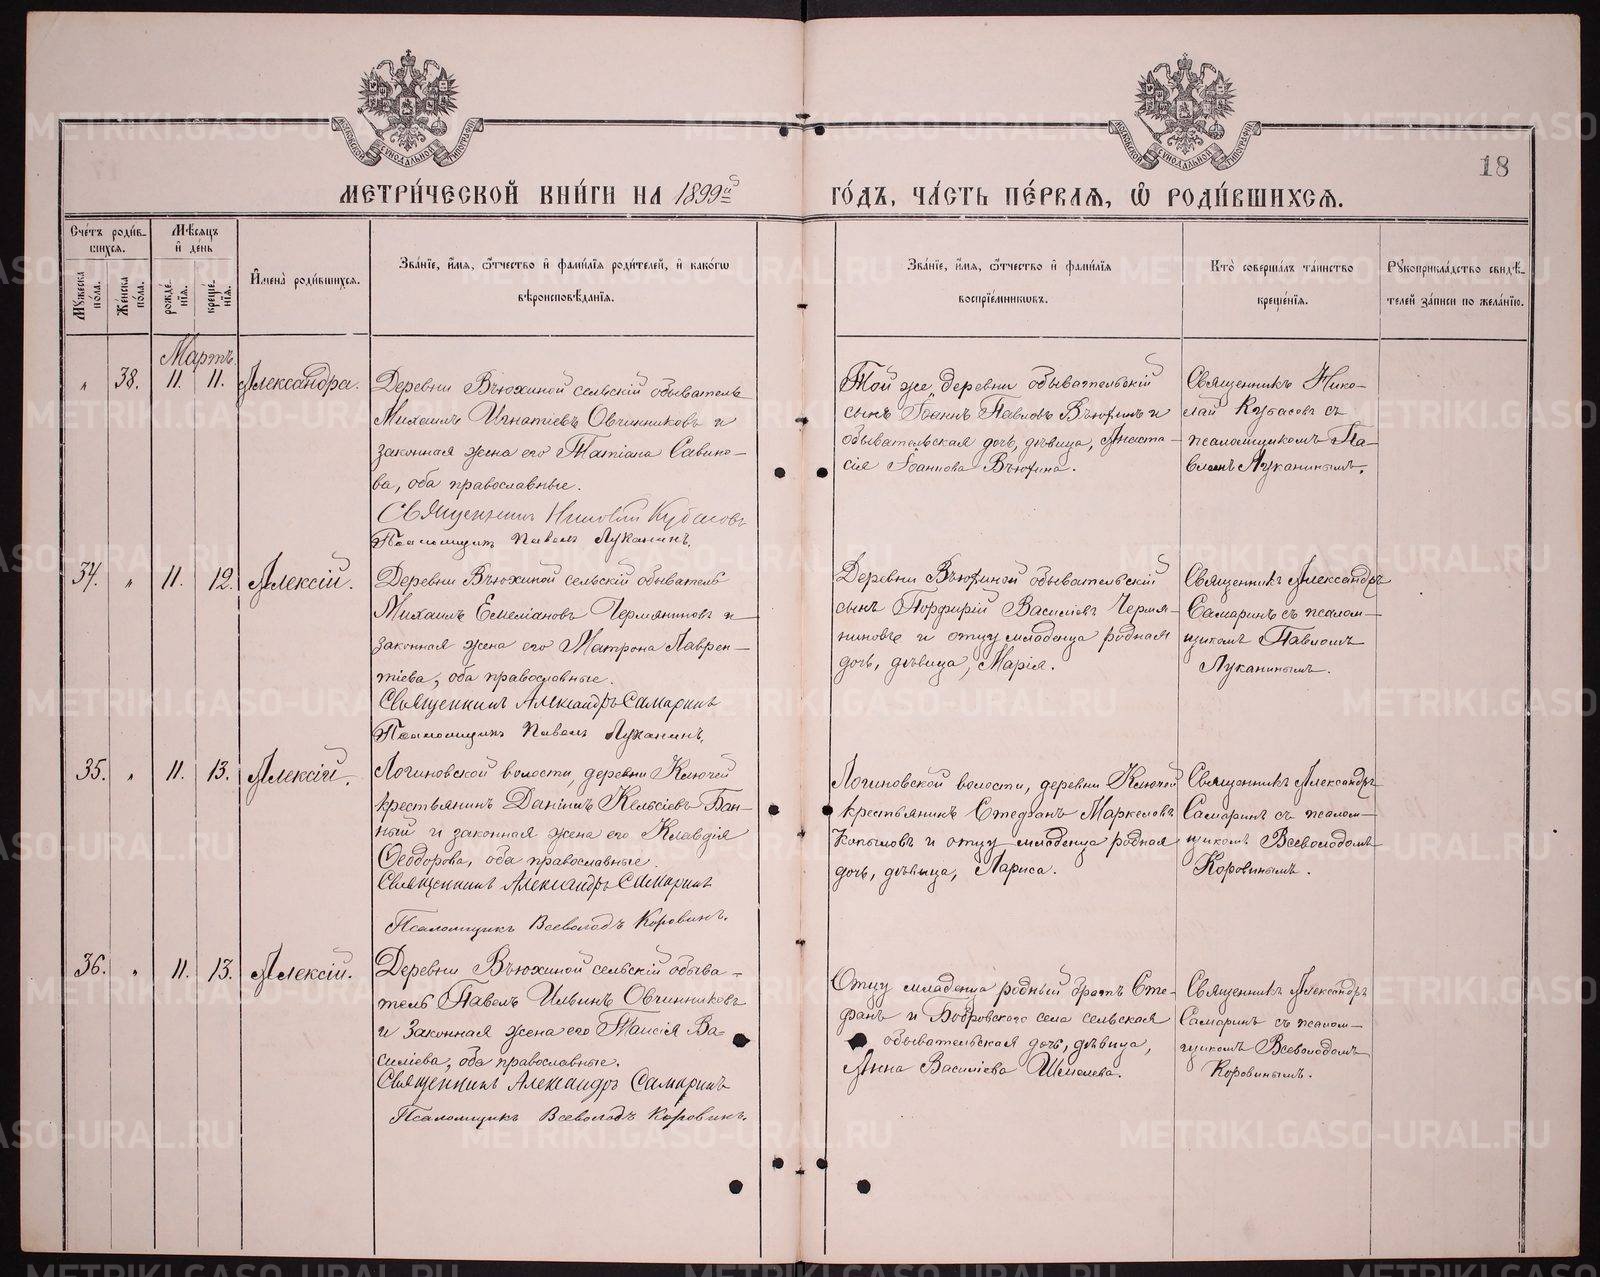 18
МЕТРИ́ЧЕСКОЙ КНИ́ГИ НА 1899й
ГО́ДЪ, ЧА́СТЬ ПЕ́РВАЯ, Ѡ҆ РОДИ́ВШИХСЯ.
Сче́тъ роди́в-
шихся.
Мѣсяцъ
и҆ де́нь
Му́жеска
пола.
Же́нска
по́ла.
рожде́-
нїя.
креще́-
нїя.
И҆мена̀ роди́вшихся.
Зва́нїе, и҆́мя, ѻ҆́тчество и҆ фами́лїя роди́телей, и҆ како́гѡ
вѣроисповѣ́данїя.
Зва́нїе, и҆́мя, ѻ҆́тчество и҆ фами́лїя
воспрїе́мниковъ.
Кто̀ соверша́лъ та́инство
креще́нїя.
Рꙋкоприкла́дство свидѣ́-
телей за́писи по жела́нїю.
Мартъ
" 38. 11. 11. Александра.
Деревни Вьюхиной сельскій обыватель
Михаилъ Игнатіевъ Овчинниковъ и
законная жена его Татіана Савино-
ва, оба православные.
Священникъ Николай Кубасовъ
Псаломщикъ Павелъ Луканинъ.
Той же деревни обывательскій
сынъ Іоаннъ Павловъ Вьюхинъ и
обывательская дочь, дѣвица, Анаста-
сія Іоаннова Вьюхина.
Священникъ Нико-
лай Кубасовъ съ
псаломщикомъ Па-
вломъ Луканинымъ.
34. " 11. 12. Алексій.
Деревни Вьюхиной сельскій обыватель
Михаилъ Емеліановъ Чермяниновъ и
законная жена его Матрона Лаврен-
тіева, оба православные.
Священникъ Александръ Самаринъ
Псаломщикъ Павелъ Луканинъ.
Деревни Вьюхиной обывательскій
сынъ Порфирій Василіевъ Чермя-
ниновъ и отцу младенца родная
дочь, дѣвица, Марія.
Священникъ Александръ
Самаринъ съ псалом-
щикомъ Павломъ
Луканинымъ.
35. " 11. 13. Алексій.
Логиновской волости, деревни Ключей
крестьянинъ Даніилъ Кельсіевъ Бан-
ный и законная жена его Клавдія
Ѳеодорова, оба православные.
Священникъ Александръ Самаринъ
Псаломщикъ Всеволодъ Коровинъ.
Логиновской волости, деревни Ключей
крестьянинъ Стефанъ Маркеловъ
Копыловъ и отцу младенца родная
дочь, дѣвица, Лариса.
Священникъ Александръ
Самаринъ съ псалом-
щикомъ Всеволодомъ
Коровинымъ.
36. " 11. 13. Алексій.
Деревни Вьюхиной сельскій обыва-
тель Павелъ Ильинъ Овчинниковъ
и законная жена его Таисія Ва-
силіева, оба православные.
Священникъ Александръ Самаринъ
Псаломщикъ Всеволодъ Коровинъ.
Отцу младенца родный братъ Сте-
фанъ и Бобровского села сельская
обывательская дочь, дѣвица,
Анна Василіева Шмелева.
Священникъ Александръ
Самаринъ съ псалом-
щикомъ Всеволодомъ
Коровинымъ.